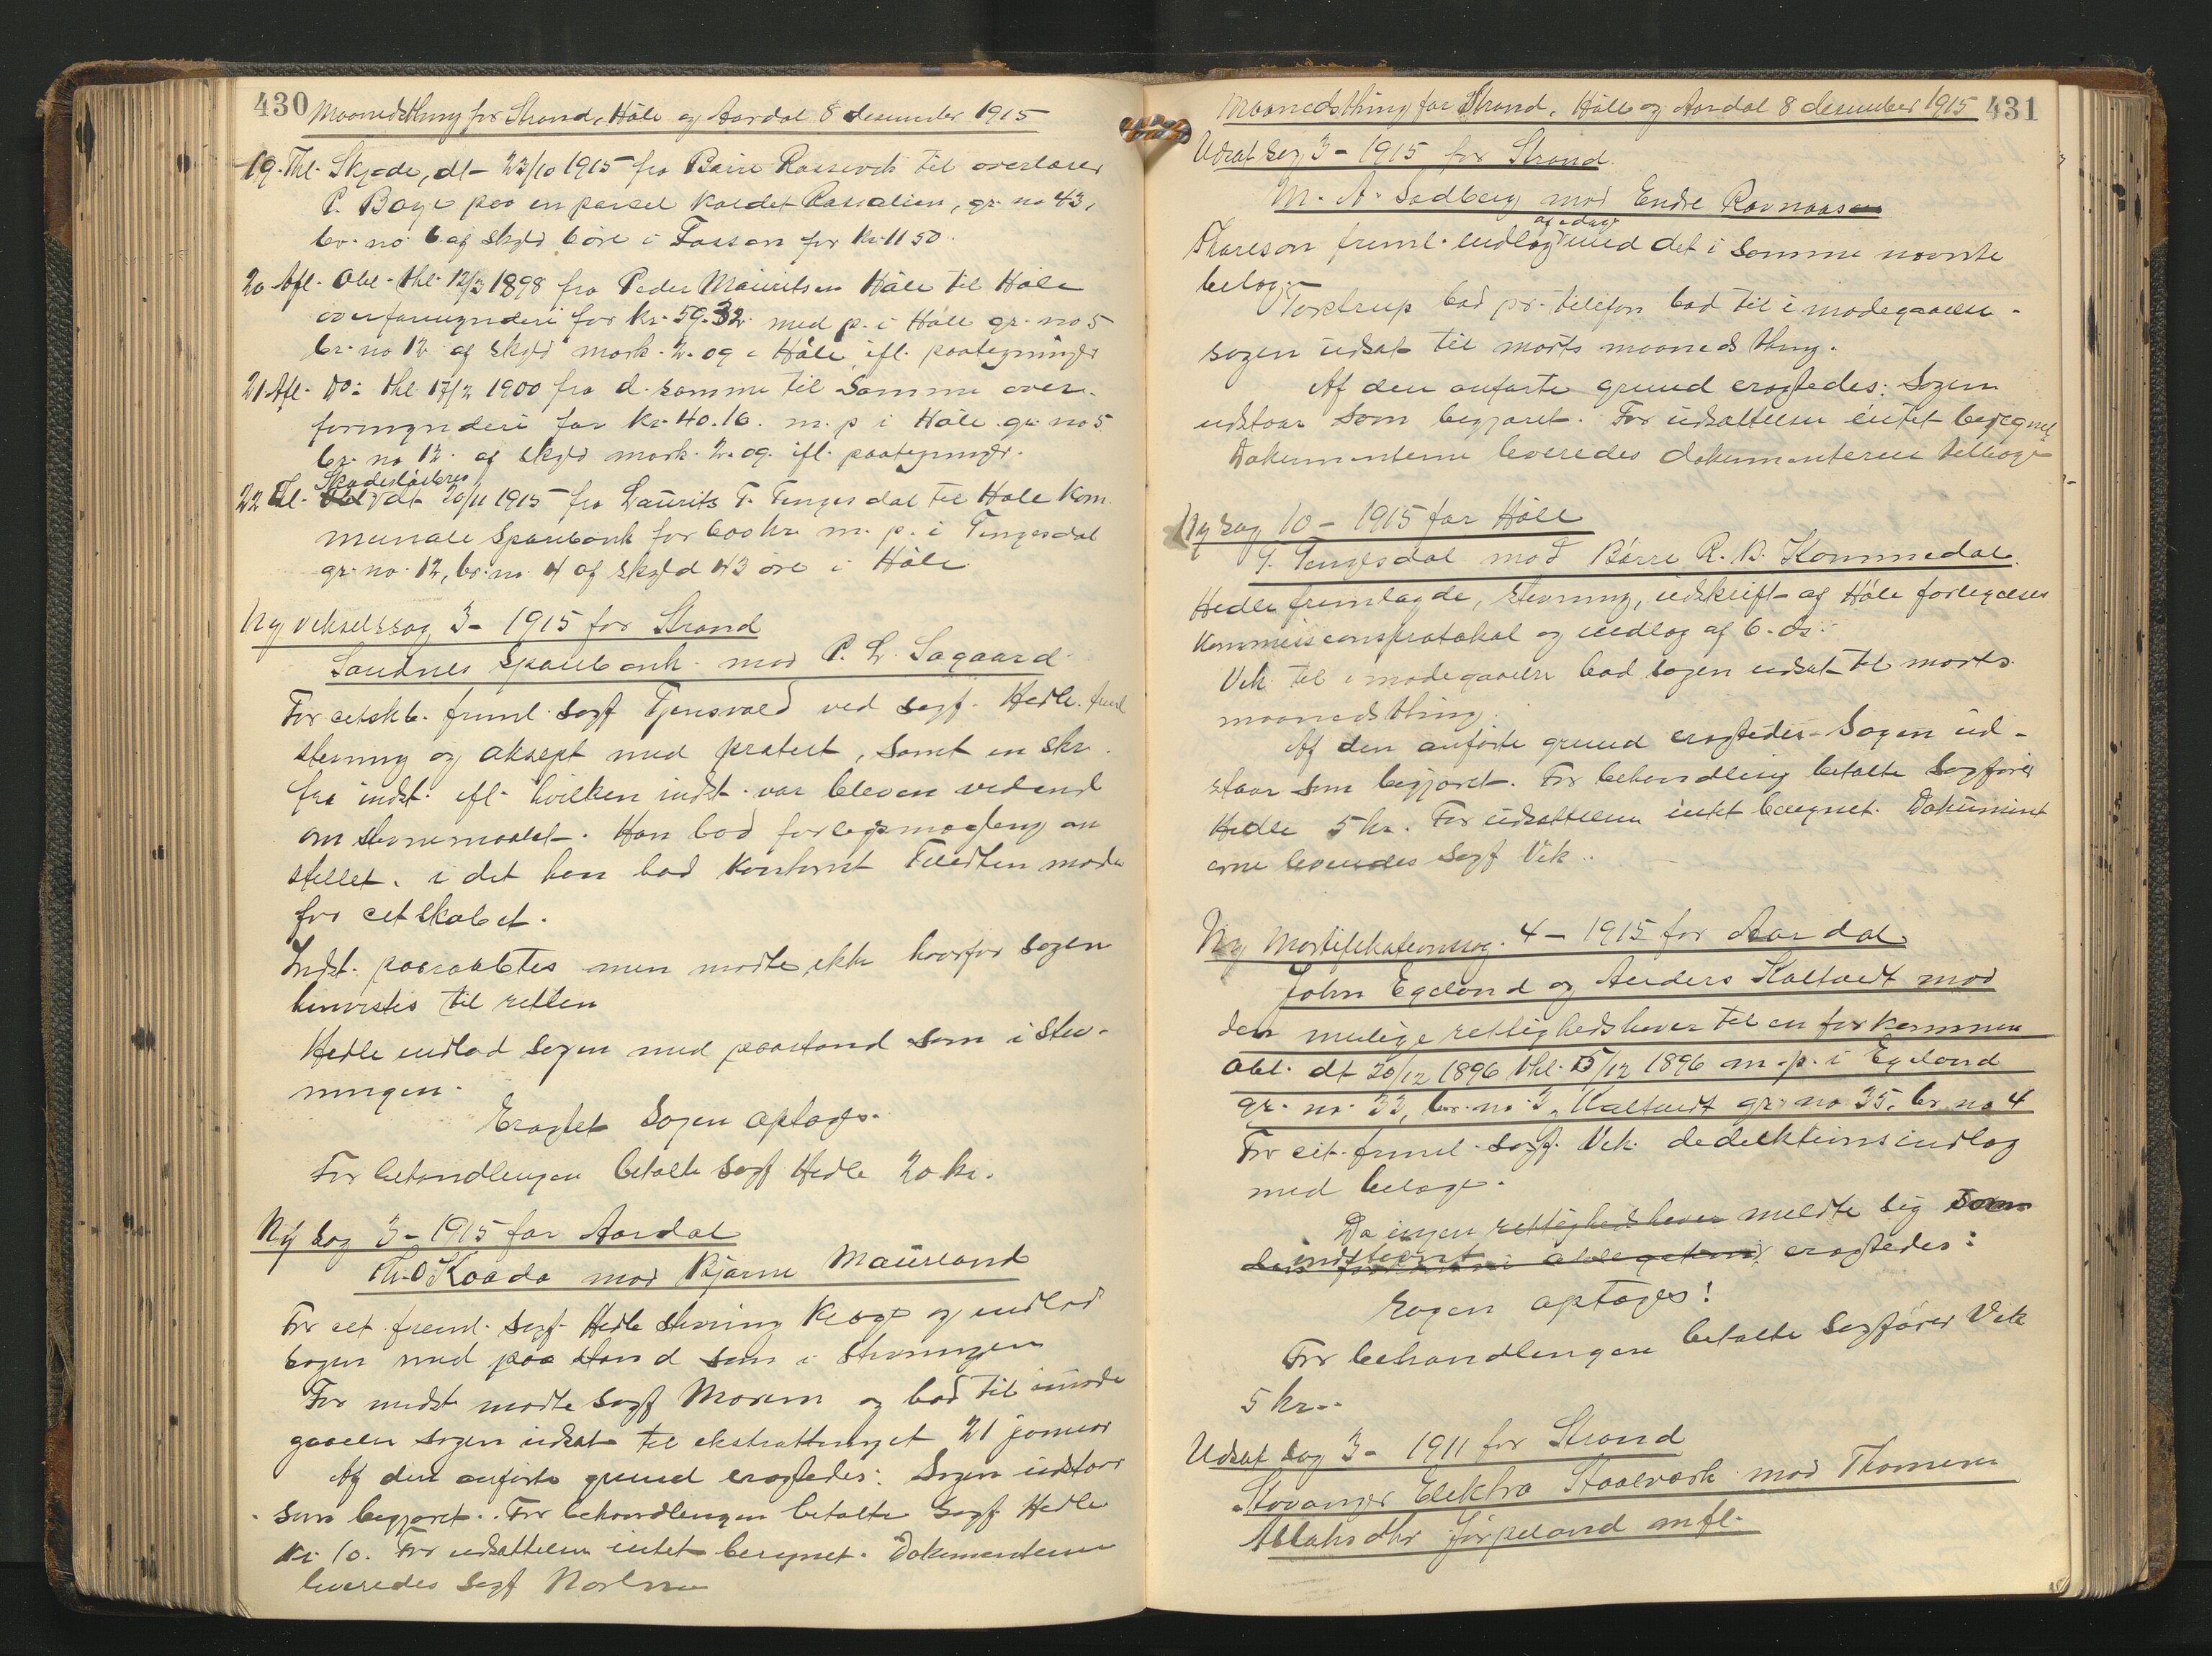 430 Maanedsthing for Strand, Håle og Aardal 8 desember 1915
19. Thl. Skjøde, dt 23/10 1915 fra Børre Rossevik til overlærer
P. Bøye paa en parsel kaldet Rassalien, gr. no 43,
br. no 6 af skyld 6 øre i Fossan for kr. 1150.
20 Afl. Obl. thl. 12/3 1898 fra Peder Mauritsen Håle til Håle
overformynderi for kr. 59.32 med p. i Håle gr. no 5
br. no 12 af skyld mark 2.09 i Håle ifl. paategninger
21 Afl. Do: thl. 17/2 1900 fra d. samme til Samme over-
formynderi for kr. 40.16. m. p i Håle gr. no 5
br. no 12. af skyld mark 2.09. ifl. paategninger.
Skadesløsbrev
22 Thl. Obl dt 20/11 1915 fra Laurits T. Tengesdal til Håle Kom
munale Sparebank for 600 kr m. p. i Tengesdal
gr. no. 12, br. no. 4 af skyld 43 øre i Håle
Ny vekselssag 3 - 1915 for Strand
Sandnes sparebank mod P. L. Sagaard
For citskb. freml. sagf Tjensvold ved sagf. Hedle freml
stevning og aksept med protest, samt en skr.
fra indst. ifl. hvilken indst. var bleven vidend
om stevnemaalet. Han bad forligsmægling an
stillet, i det han bad kontorist Tiedten møde
for citskabet.
Indst. paaraabtes men mødte ikke hvorfor sagen
henvistes til retten
Hedle indlod sagen med paastand som i stev-
ningen.
Eragtet Sagen optages.
For behandlingen betalte sagf Hedle 20 kr.
Ny sag 3 - 1915 for Aardal
Th. O Kaada mod Bjarne Maurland
For cit freml. sagf. Hedle stevning klage og indlod
sagen med paastand som i stevningen
For indst mødte sagf Morem og bad til imøde
gaaelse sagen udsat til ekstrattinget 21 januar
Af den anførte grund eragtedes: Sagen udstaar
som begjæret. For behandlingen betalte sagf Hedle
kr 10. For udsættelsen intet beregnet. Dokumenterne
leveredes sagf
Maanedsthing for Strand, Håle og Aardal 8 desember 1915 431
Udsat sag 3 - 1915 for Strand.
M. A. Sødberg mod Endre Ravnaasen
af idag
Thoreson freml. indlæg med det i samme nævnte
belag.
Torstrup bad pr. telefon bad til imødegaaelse
sagen udsat til marts maanedsthing.
Af den anførte grund eragtedes: Sagen
udstaar som begjæret. For udsættelsen intet beregnet
Dokumenterne leveredes dokumenterne tilbage
Ny sag 10 - 1915 for Håle
T. Tengesdal mod Børre R. B. Kommedal.
Hedle fremlagde, stevning, udskrift af Håle forligelses
kommissionsprotokol og indlæg af 6. ds.
Vik til imødegaaelse bad sagen udsat til marts
maanedsthing.
Af den anførte grund eragtedes Sagen ud-
staar som begjæret. For behandling betalte Sagfører
Hedle 5 kr. For udsættelsen intet beregnet. Dokument
erne leveredes Sagf Vik.
Ny Mortifikationssag. 4 - 1915 for Aardal.
John Egeland og Anders Kaltvedt mod
den mulige rettighedshaver til en forkommen
obl. dt 20/12 1896 thl. 15/12 1896 m. p. i Egeland
gr. no. 33, br. no 3, Kaltvedt gr. no 35. br. no 4
For cit. freml. sagf. Vik deduktionsindlæg
med belage.
Da ingen rettighedshaver meldte sig som
indstevnt
eragtedes:
Sagen optages!
For behandlingen betalte Sagfører Vik
5 kr.
Udsat sag 3 - 1911 for Strand
Stavanger Elektro Staalværk mod Thomine
Jørpeland mfl.